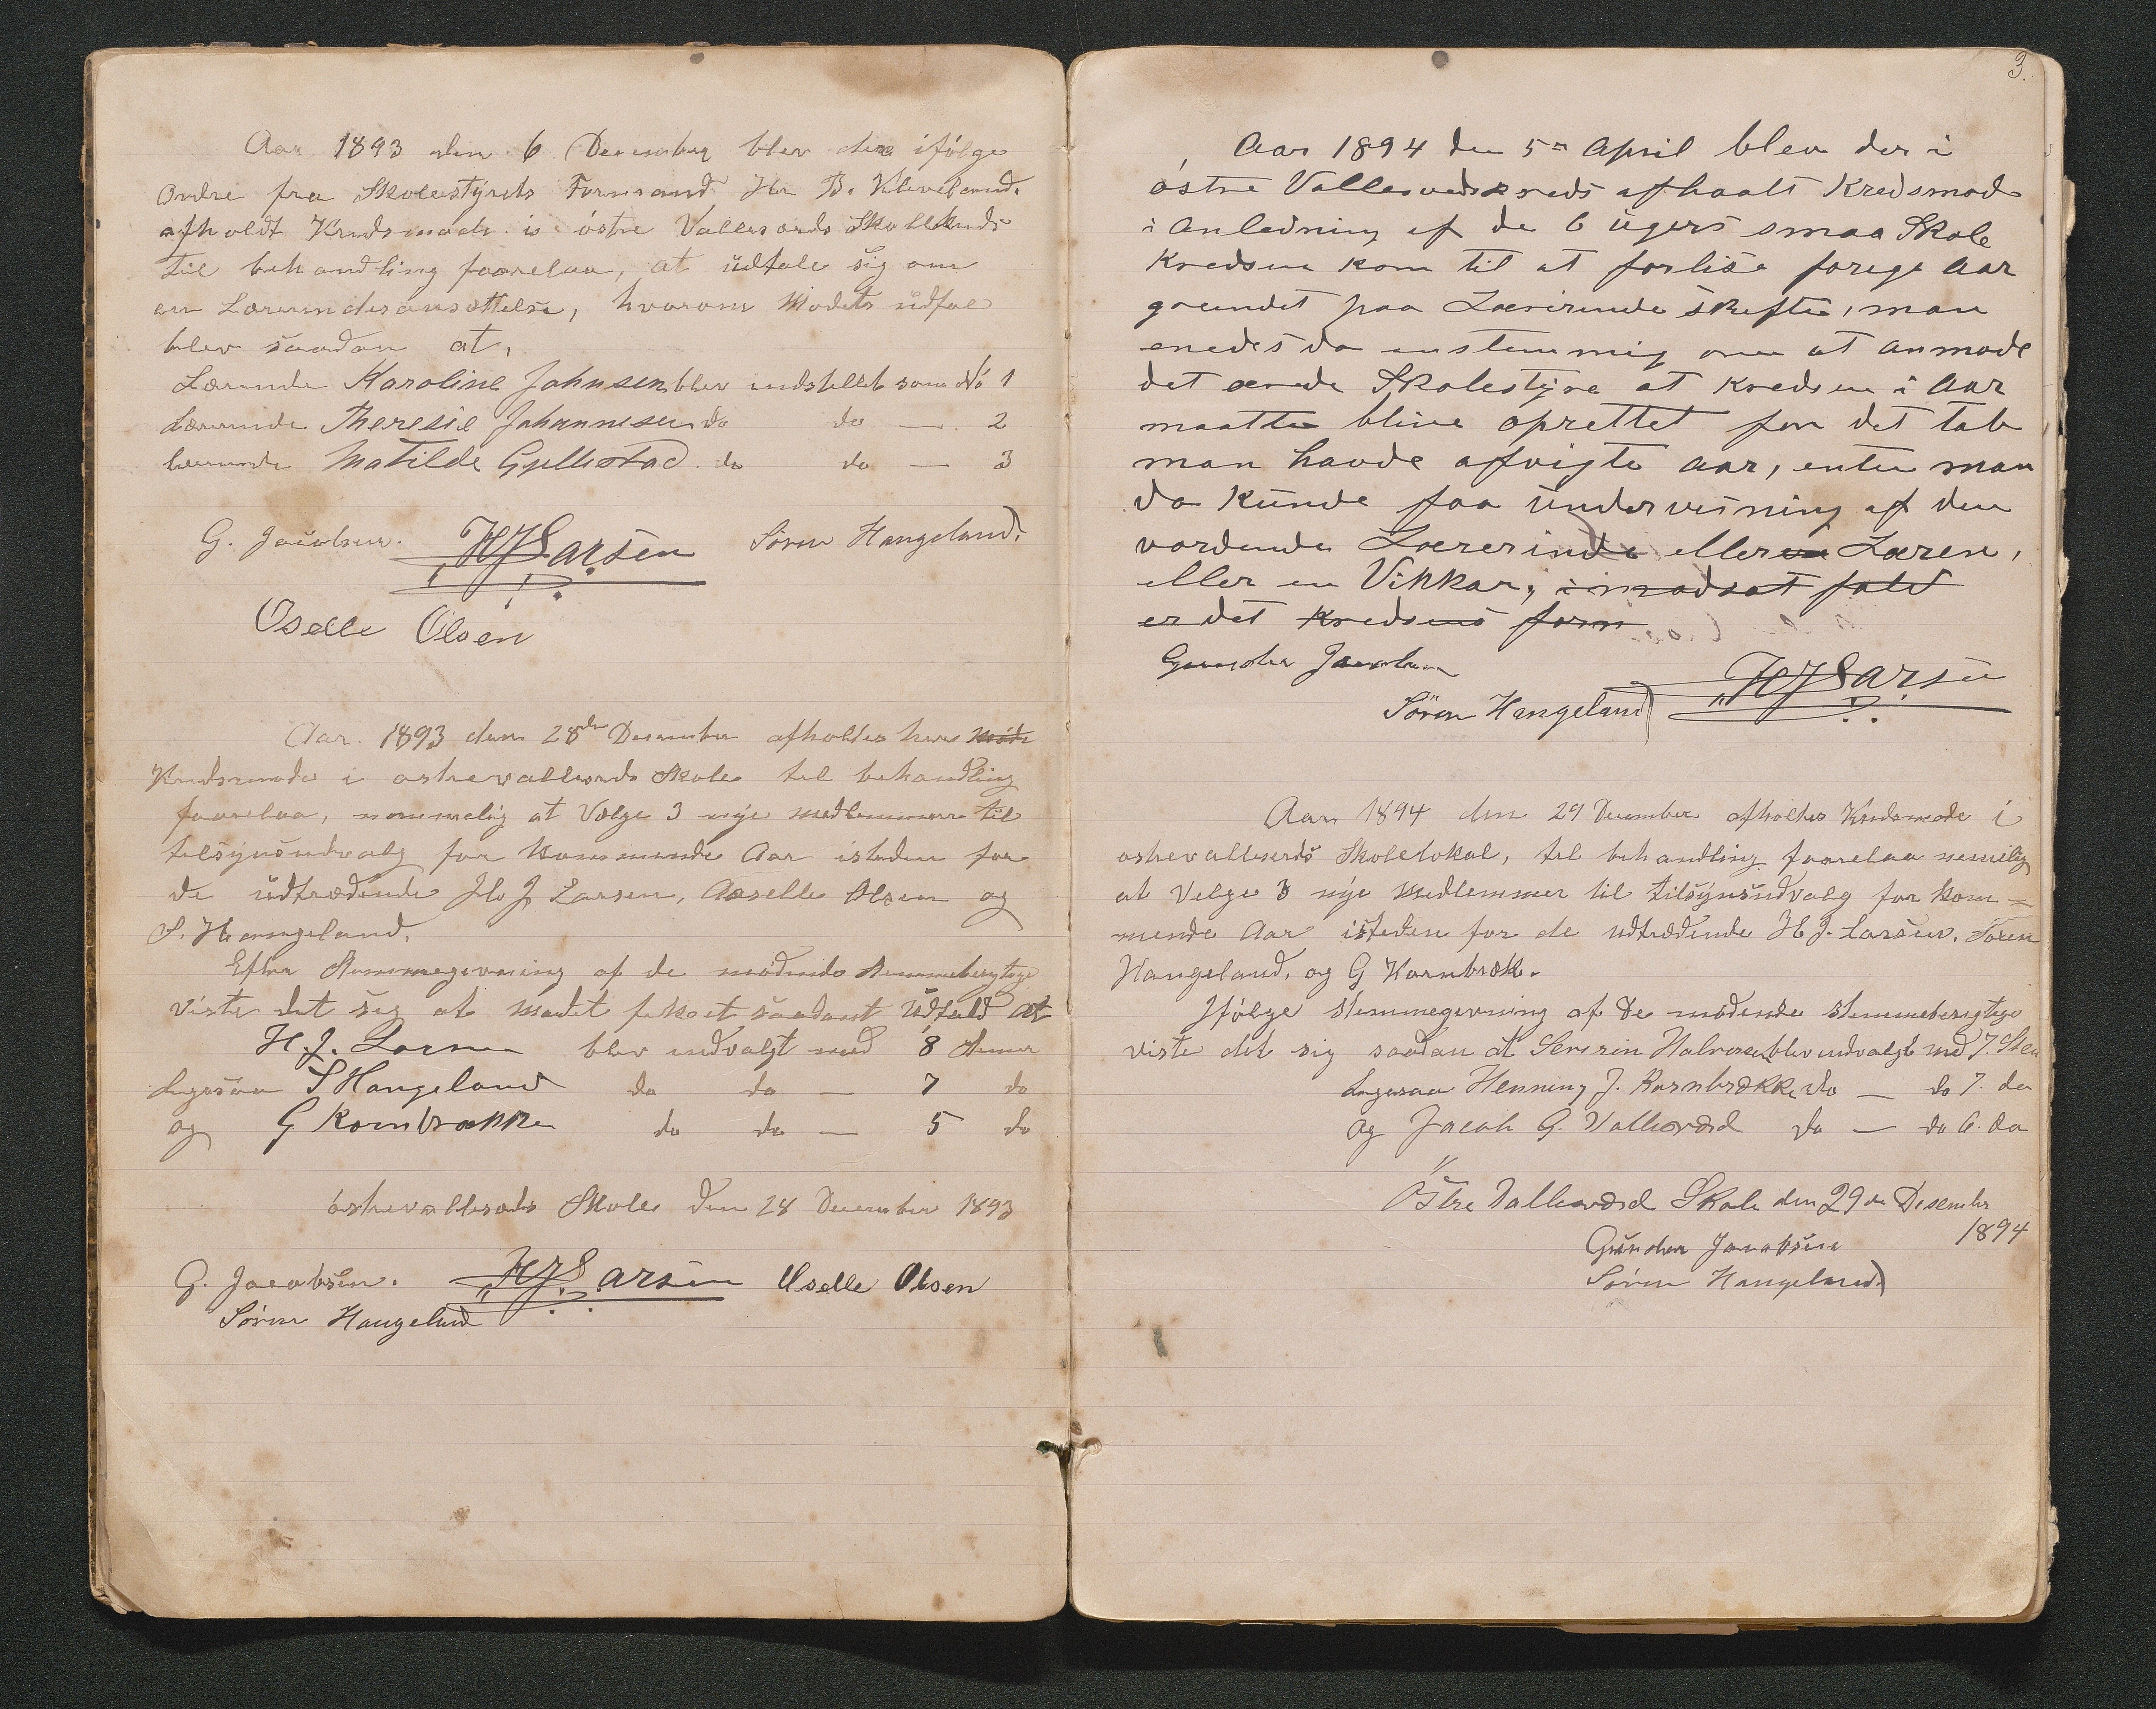 Aar 1893 den 6 December blev der ifølge
Ordre fra Skolestyrets Formand Hr B. Kleveland.
afholdt Kredsmøde i østre Vallesværds Skolekreds
til behandling foorelaa, at üdtale sig om
en Lærerindesansættelse, hvorom Mødets üdfal
blev saadan at,
Lærerinde Karoline Johnsen blev indstillet som No 1
Lærerinde Theresie Johannesen do do — 2
Lærerinde Matilde Gjellestad do do — 3
G. Jacobsen. HJLarsen Søren Hangeland.
Oselle Olsen
Aar. 1893 den 28de December afholdes her Møde
Kredsmøde i østrevallesverds Skole til behandling
foorelaa, nemmelig at Vælge 3 nÿe medlemmer til
tilsynsudvalg for kommende Aar isteden for
de üdtrædende H. J. Larsen, Osselle Olsen og
S. Hangeland.
Efter Stemmegivning af de mødende stemmeberigtige
viste det sig at mødet fik et saadant üdfald at
H. J. Larsen blev indvalgt med 8 stemer
Ligesaa S Hangeland do do — 7 do
og G Kornbrække do do — 5 do
østrevallesverds Skole den 28 December 1893
G. Jacobsen. HJLarsen Oselle Olsen
Søren Hangeland
3.
Aar 1894 den 5te April blev der i
østre Vallesverds kreds afhaalt Kredsmøde
i Anledning af de 6 ügers smaa Skole
Kredsen kom til at forlise forige Aar
grundet paa Lærerinde skifte, man
enedes da enstemmig om at anmode
det ærede Skolestÿre at Kredsen i Aar
maatte blive oprettet for det tab
man havde afvigte aar, enten man
da künde faa ündervisning af den
vordende Lærerinde eller en Læren,
eller en Vikkar, i modsat fald
er det Kredsens form
Gunder Jacobsen
Søren Hangeland HJLarsen
Aar 1894 den 29 December afholdes Kredsmøde i
østrevallesverds Skolelokal, til behandling foorelaa nemelig
at Velge 3 nÿe Medlemmer til tilsÿnsüdvalg for kom=
mende Aar isteden for de udtrædende H J. Larsen, Søren
Hangeland, og G Kornbræk.
Ifølge Stemmegivning af de mødende stemmeberigtige
viste det sig saadan at Severin Halvorsen blev indvalgt med 7. Stem
Ligesaa Henning J. Kornbrække do — do 7. do
og Jacob G. Vallesværd do — do 6. do
Østre Vallesværd Skole den 29de Desember
1894
Günder Jacobsen
Søren Hangeland